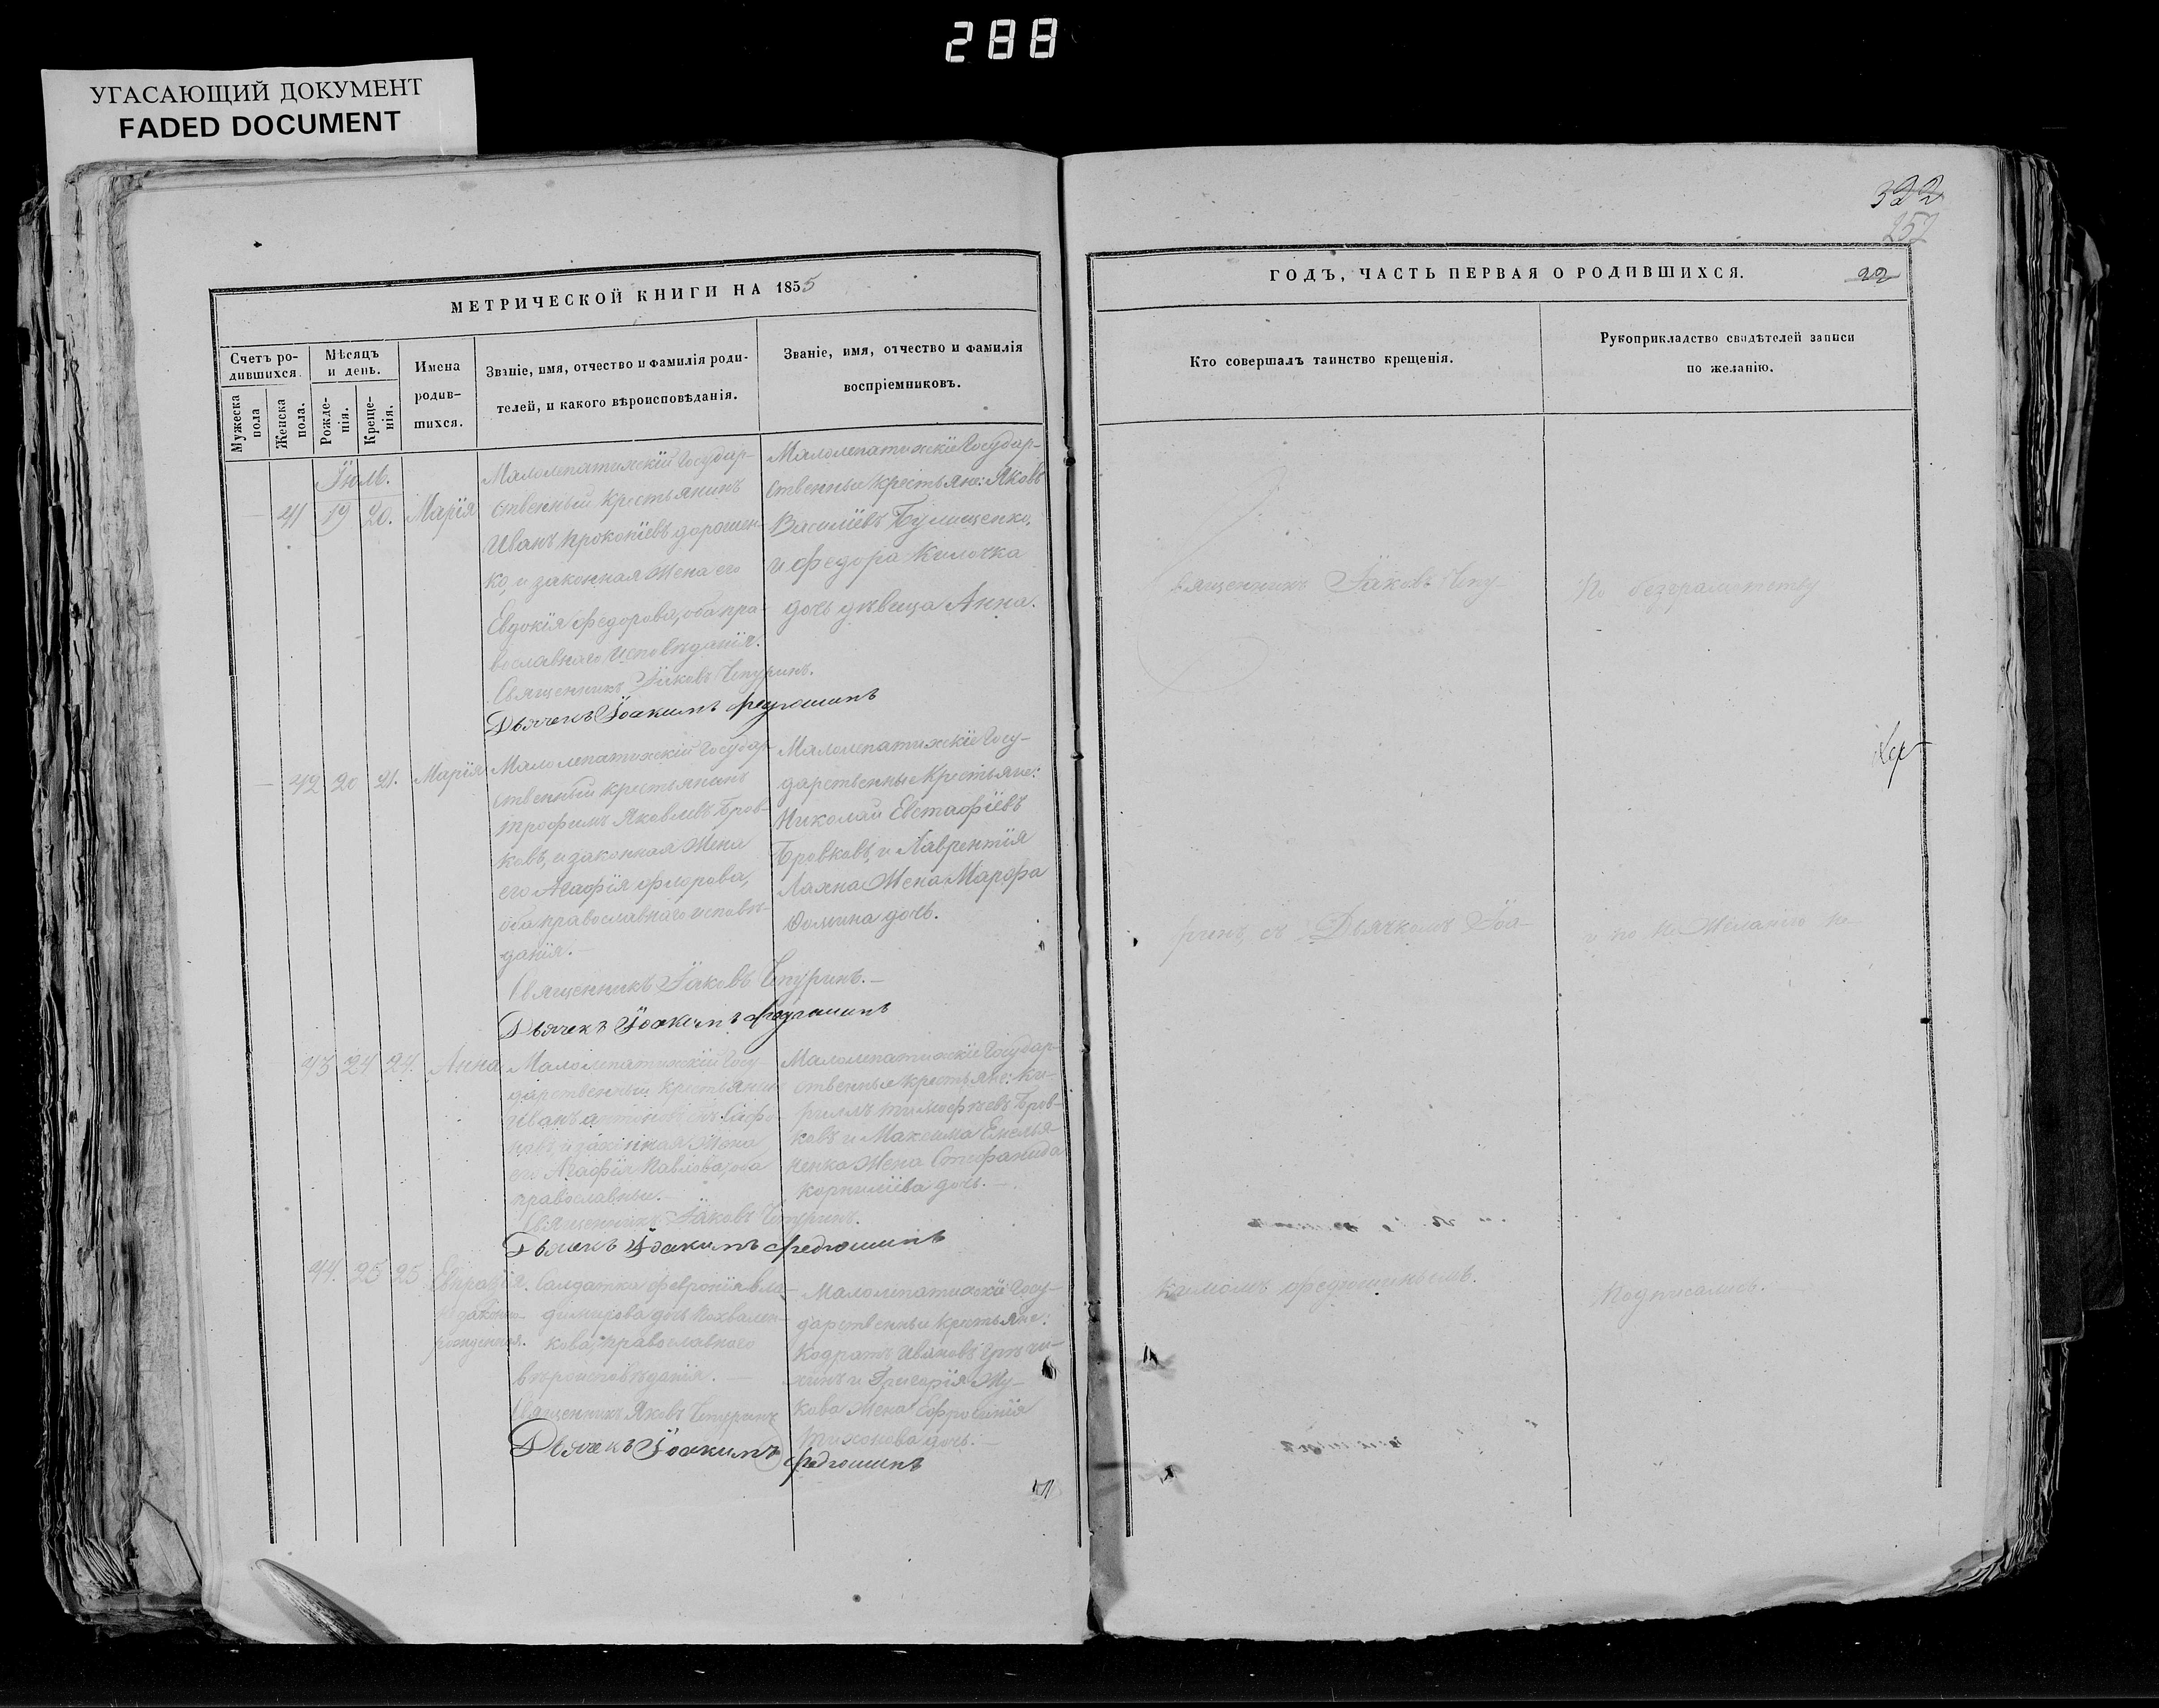 288
УГАСАЮЩИЙ ДОКУМЕНТ
FADED DOCUMENT
МЕТРИЧЕСКОЙ КНИГИ НА 1855
Счетъ ро-
дившихся.
Мужеска пола
Женска пола.
Мѣсяцъ
и день.
Рожде-
нія.
Креще-
нія.
Имена
родив-
шихся.
Званіе, имя, отчество и фамилія роди-
телей, и какого вѣроисповѣданія.
Званіе, имя, отчество и фамилія
воспріемниковъ.
Іюль.
41 19 20. Марія
Малолепатижскій Государ-
ственный крестьянинъ
Иванъ Прокопіевъ дорошен-
ко, и законная жена его
Евдокія Федорова, оба пра-
вославнаго исповѣданія.
Священникъ Іаковъ Чепуринъ.
Дьячекъ Іоакимъ Федюшинъ
Малолепатижскіе Государ-
ственные крестьяне: Яковъ
Василіевъ
и Федора Килочка
дочь дѣвица Анна.
42 20 21. Марія
Малолепатижскій Государ-
ственный крестьянинъ
Трофимъ Яковлевъ Бров-
ковъ, и законная жена
его Агафія Флорова,
оба православнаго исповѣ-
данія.
Священникъ Іаковъ Чепуринъ.
Дьячекъ Іоакимъ Федюшинъ
Малолепатижскіе Госу-
дарственные крестьяне:
Николай Евстафіевъ
Бровковъ, и Лаврентія
Лахна жена Марфа
Фомина дочь.
43 24 24. Анна
Малолепатижскій Госу-
дарственный крестьянинъ
Иванъ
и законная жена
его Агафія Павлова, оба
православные.
Священникъ Іаковъ Чепуринъ.
Дьячекъ Іоакимъ Федюшинъ
Малолепатижскіе Государ-
ственные крестьяне: Ки-
риллъ Тимофѣевъ Бров-
ковъ и Максима Емелья-
ненка жена Стефанида
Корниліева дочь.
44. 25 25
незаконно-
рожденная.
Солдатка Февронія Вла-
димирова дочь Похвален-
кова, православнаго
вѣроисповѣданія.
Священникъ Яковъ Чепуринъ
Дьячекъ Іоакимъ Федюшинъ
Малолепатижскіе Госу-
дарственные крестьяне:
Кодратъ Ивановъ
и Григорія Жу-
кова жена Ефросинія
Тихонова дочь.
322
252
ГОДЪ, ЧАСТЬ ПЕРВАЯ О РОДИВШИХСЯ.
22
Кто совершалъ таинство крещенія.
Рукоприкладство свидѣтелей записи
по желанію.
Священникъ Іаковъ Чепу-
ринъ, съ Дьячкомъ Іоа-
кимомъ Федюшинымъ.
По безграмотству
и по не желанію не
подписались.